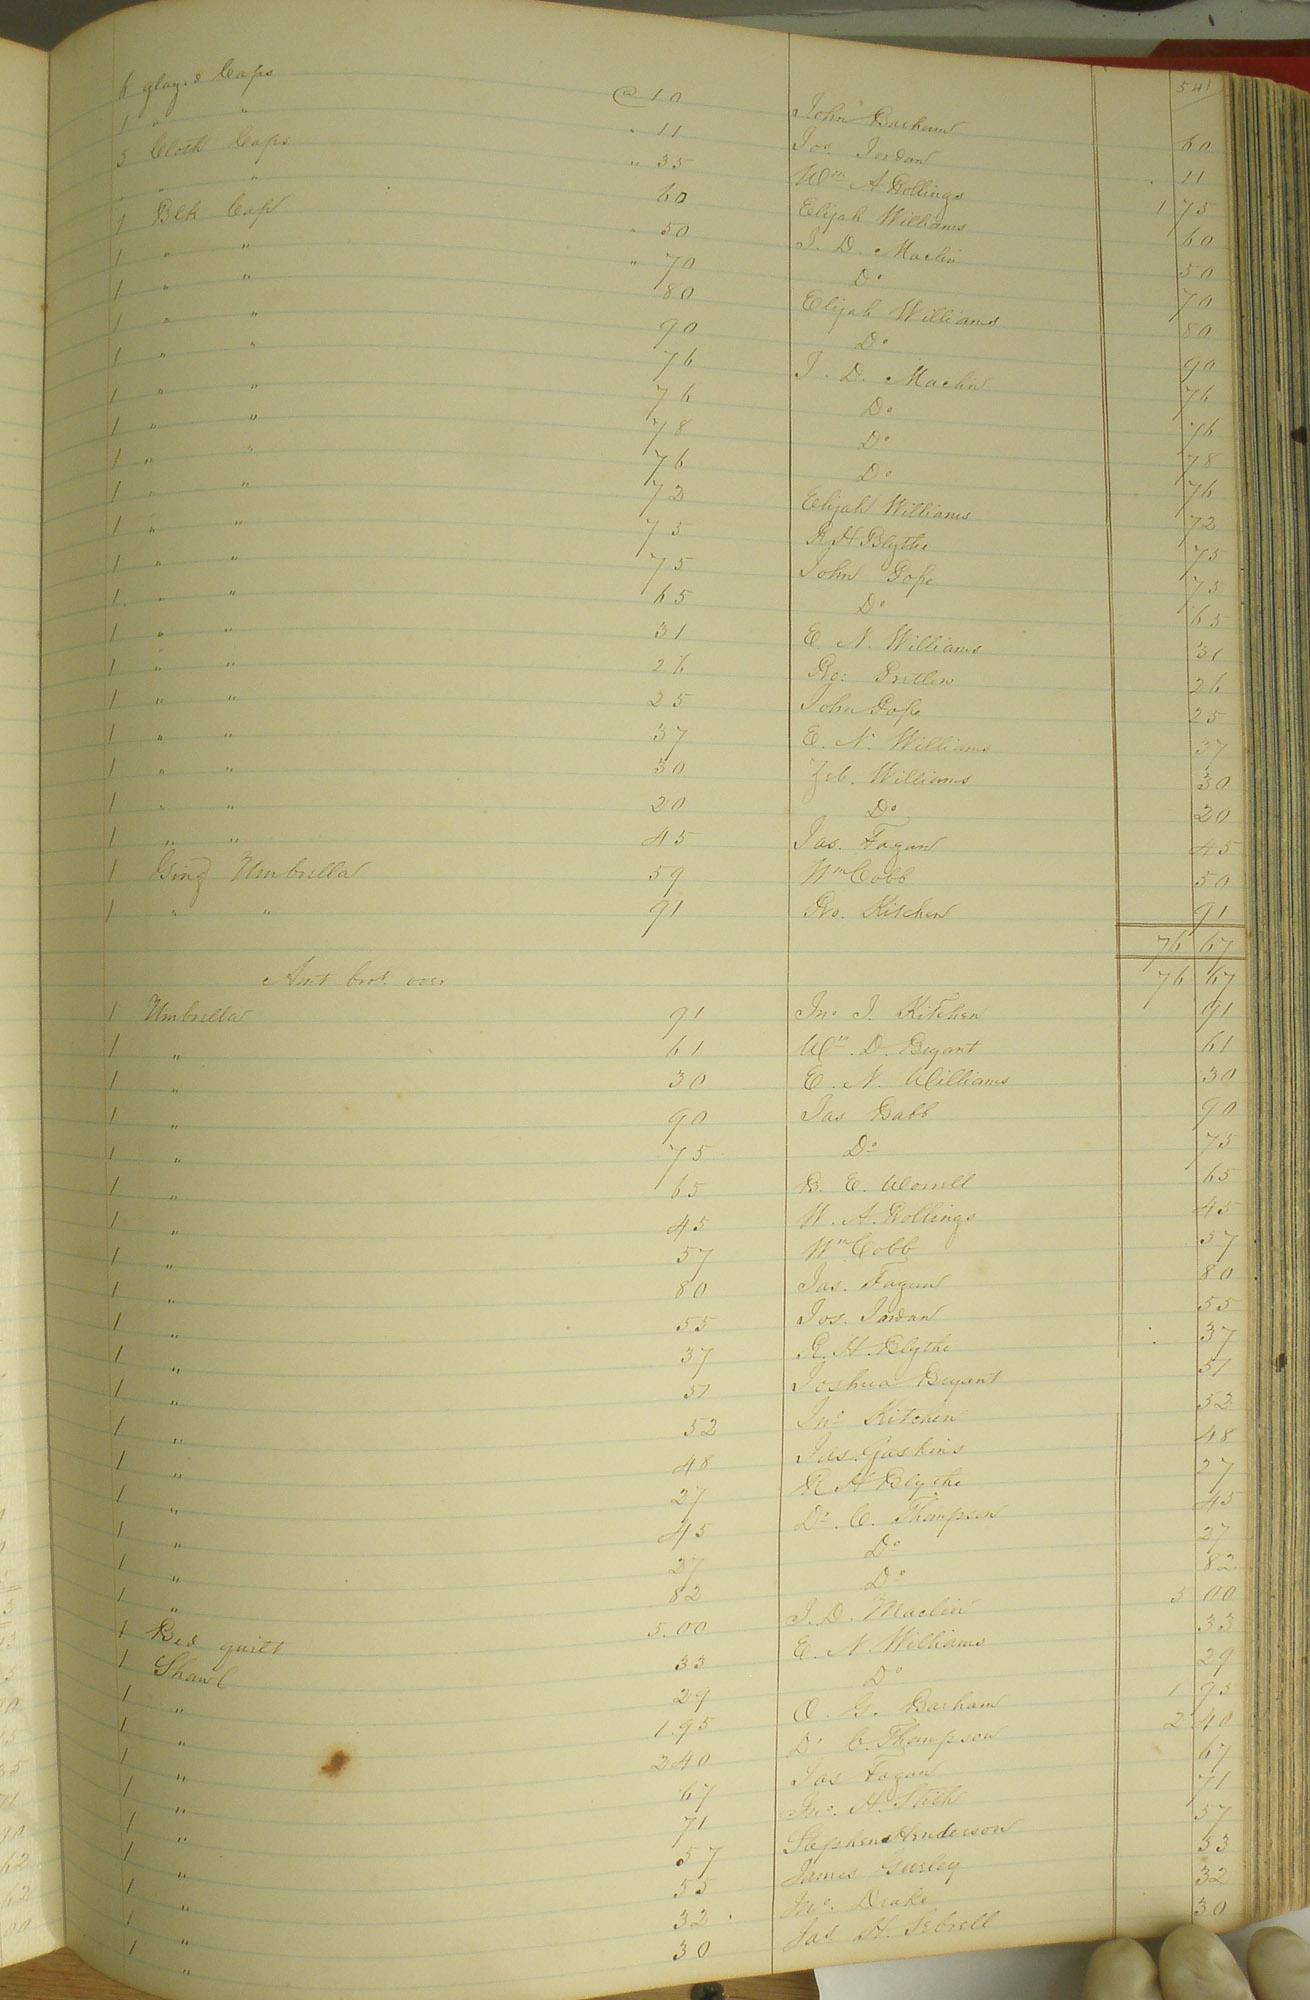 541
6 glaz.d Caps @ 10 John Barham 60
1 " " " 11 Jos. Jordan 11
5 Cloth Caps " 35 Wm A Rollings 1 75
" " 60 Elijah Williams 60
1 Blk Cap " 50 J. D. Maclin 50
1 " " " 70 Do 70
1 " " 80 Elijah Williams 80
1 " " 90 Do 90
1 " " 76 J. D. Maclin 76
1 " " 76 Do 76
1 " " 78 Do 78
1 " " 76 Do 76
1 " " 72 Elijah Williams 72
1 " " 75 R H Blythe 75
1 " " 75 John Pope 75
1 " " 65 Do 65
1 " " 31 E N. Williams 31
1 " " 26 Ro: Pretlow 26
1 " " 25 John Pope 25
1 " " 37 E. N. Williams 37
1 " " 30 Zeb. Williams 30
1 " " 20 Do 20
1 " " 45 Jas. Fagan 45
1 Ging Umbrella 59 Wm Cobb 50
1 " " 91 Ro. Kitchen 91
76 67
Amt brot. over 76 67
1 Umbrella 91 Jno J. Kitchen 91
1 " 61 Wm. D. Bryant 61
1 " 30 E. N. Williams 30
1 " 90 Jas Babb 90
1 " 75 Do 75
1 " 65 B. E. Worrell 65
1 " 45 W. A. Rollings 45
1 " 57 Wm Cobb 57
1 " 80 Jas. Fagan 80
1 " 55 Jos. Jordan 55
1 " 37 R. H. Blythe 37
1 " 51 Joshua Bryant 51
1 " 52 Jno Kitchen 52
1 " 48 Jas. Gaskins 48
1 " 27 R H Blythe 27
1 " 45 Dr. C. Thompson 45
1 " 27 Do 27
1 " 82 Do 82
1 Bed quilt 5.00 J. D. Maclin 5 00
1 Shawl 33 E. N. Williams 33
1 " 29 Do 29
1 " 1.95 O. G. Barham 1 95
1 " 2 40 Dr C. Thompson 2 40
1 " 67 Jas Fagan 67
1 " 71 Jno. H. Stith 71
1 " 57 Stephen Henderson 57
1 " 55 James Gurley 53
1 " 32 Jno. Drake 32
1 " 30 Jas H. Sebrell 30